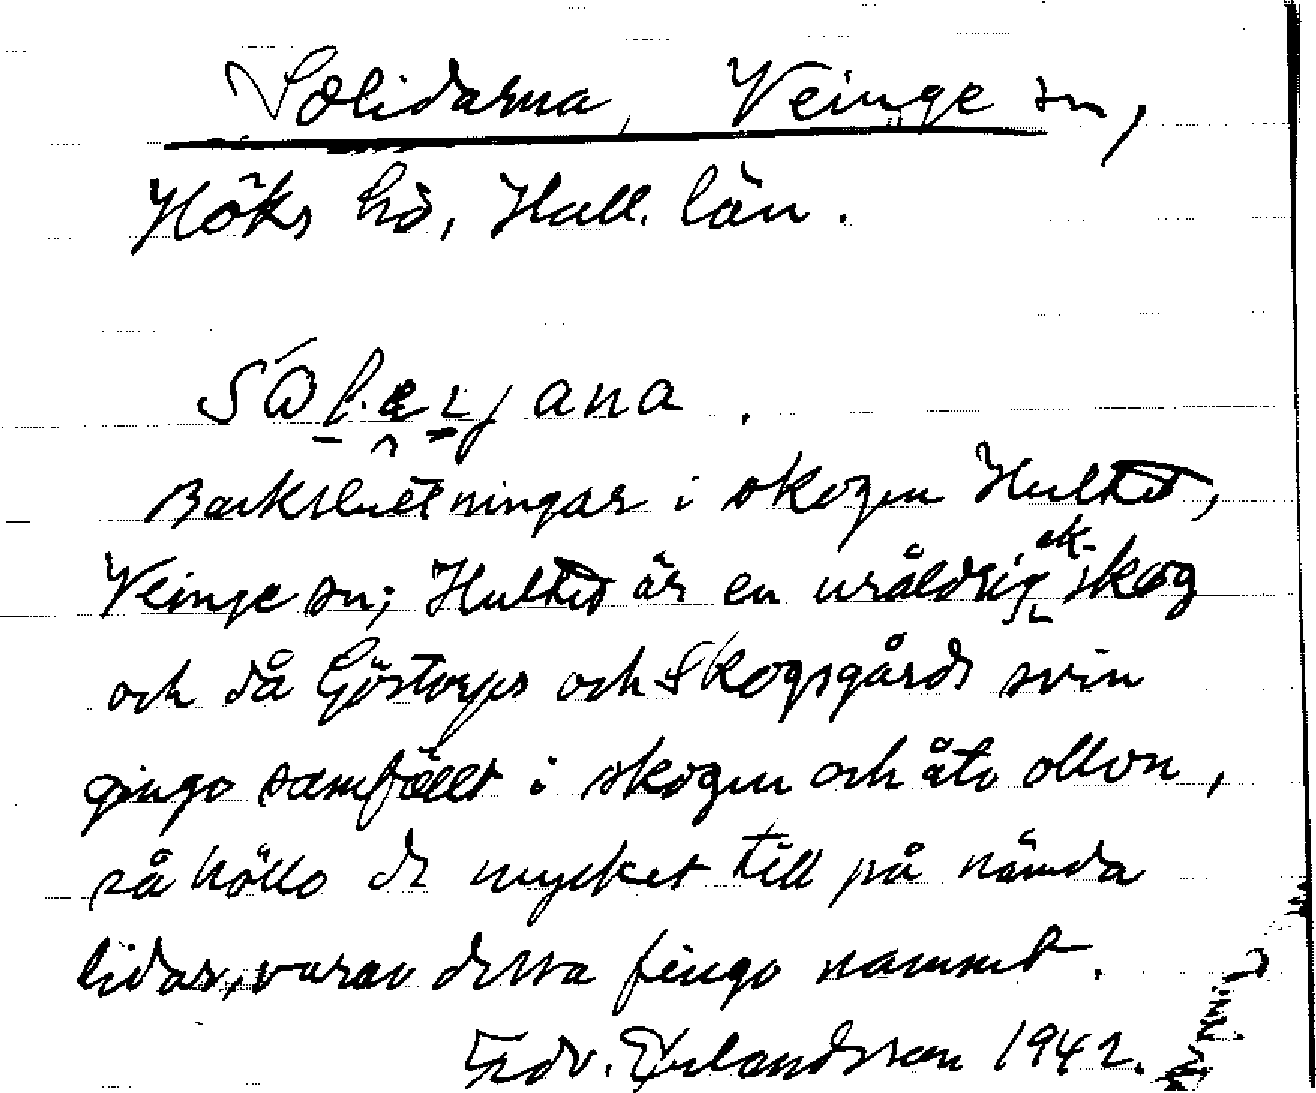 Solidarna, Veinge sn,
Höks hd, Hall. län.
Backsluttningar i skogen Hultet,
Veinge sn; Hultet är en uråldrig ek-skog
och då Göstorps och Skogsgårds svin
gingo samfällt i skogen och åto ollon,
så höllo de mycket till på nämda
lidar, varav dessa fingo namnet.
Edv. Erlandsson 1942.